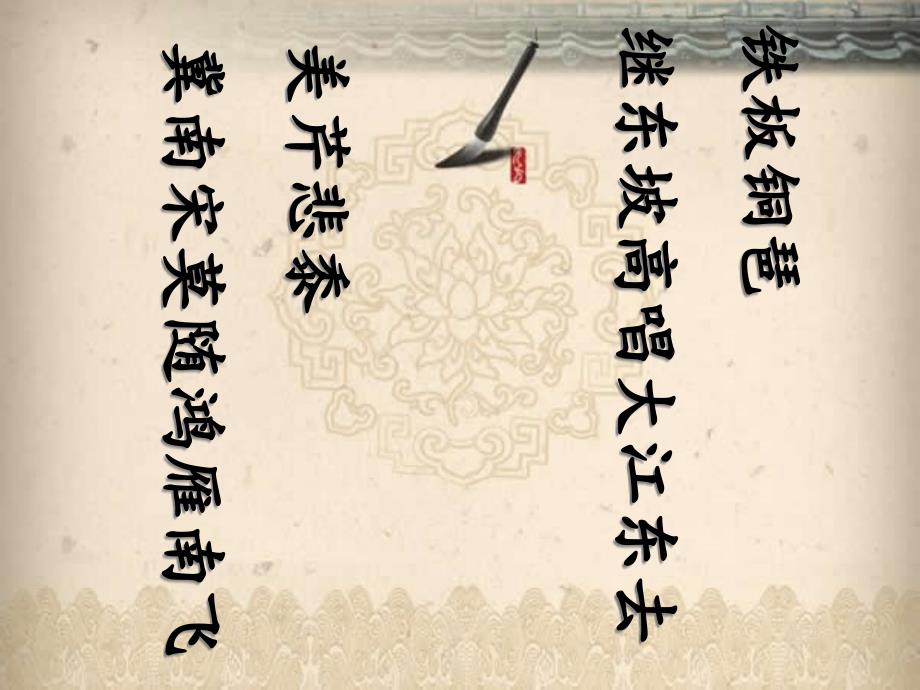 铁板铜琶
继东坡高唱大江东去
美芹悲黍
冀南宋莫随鸿雁南飞